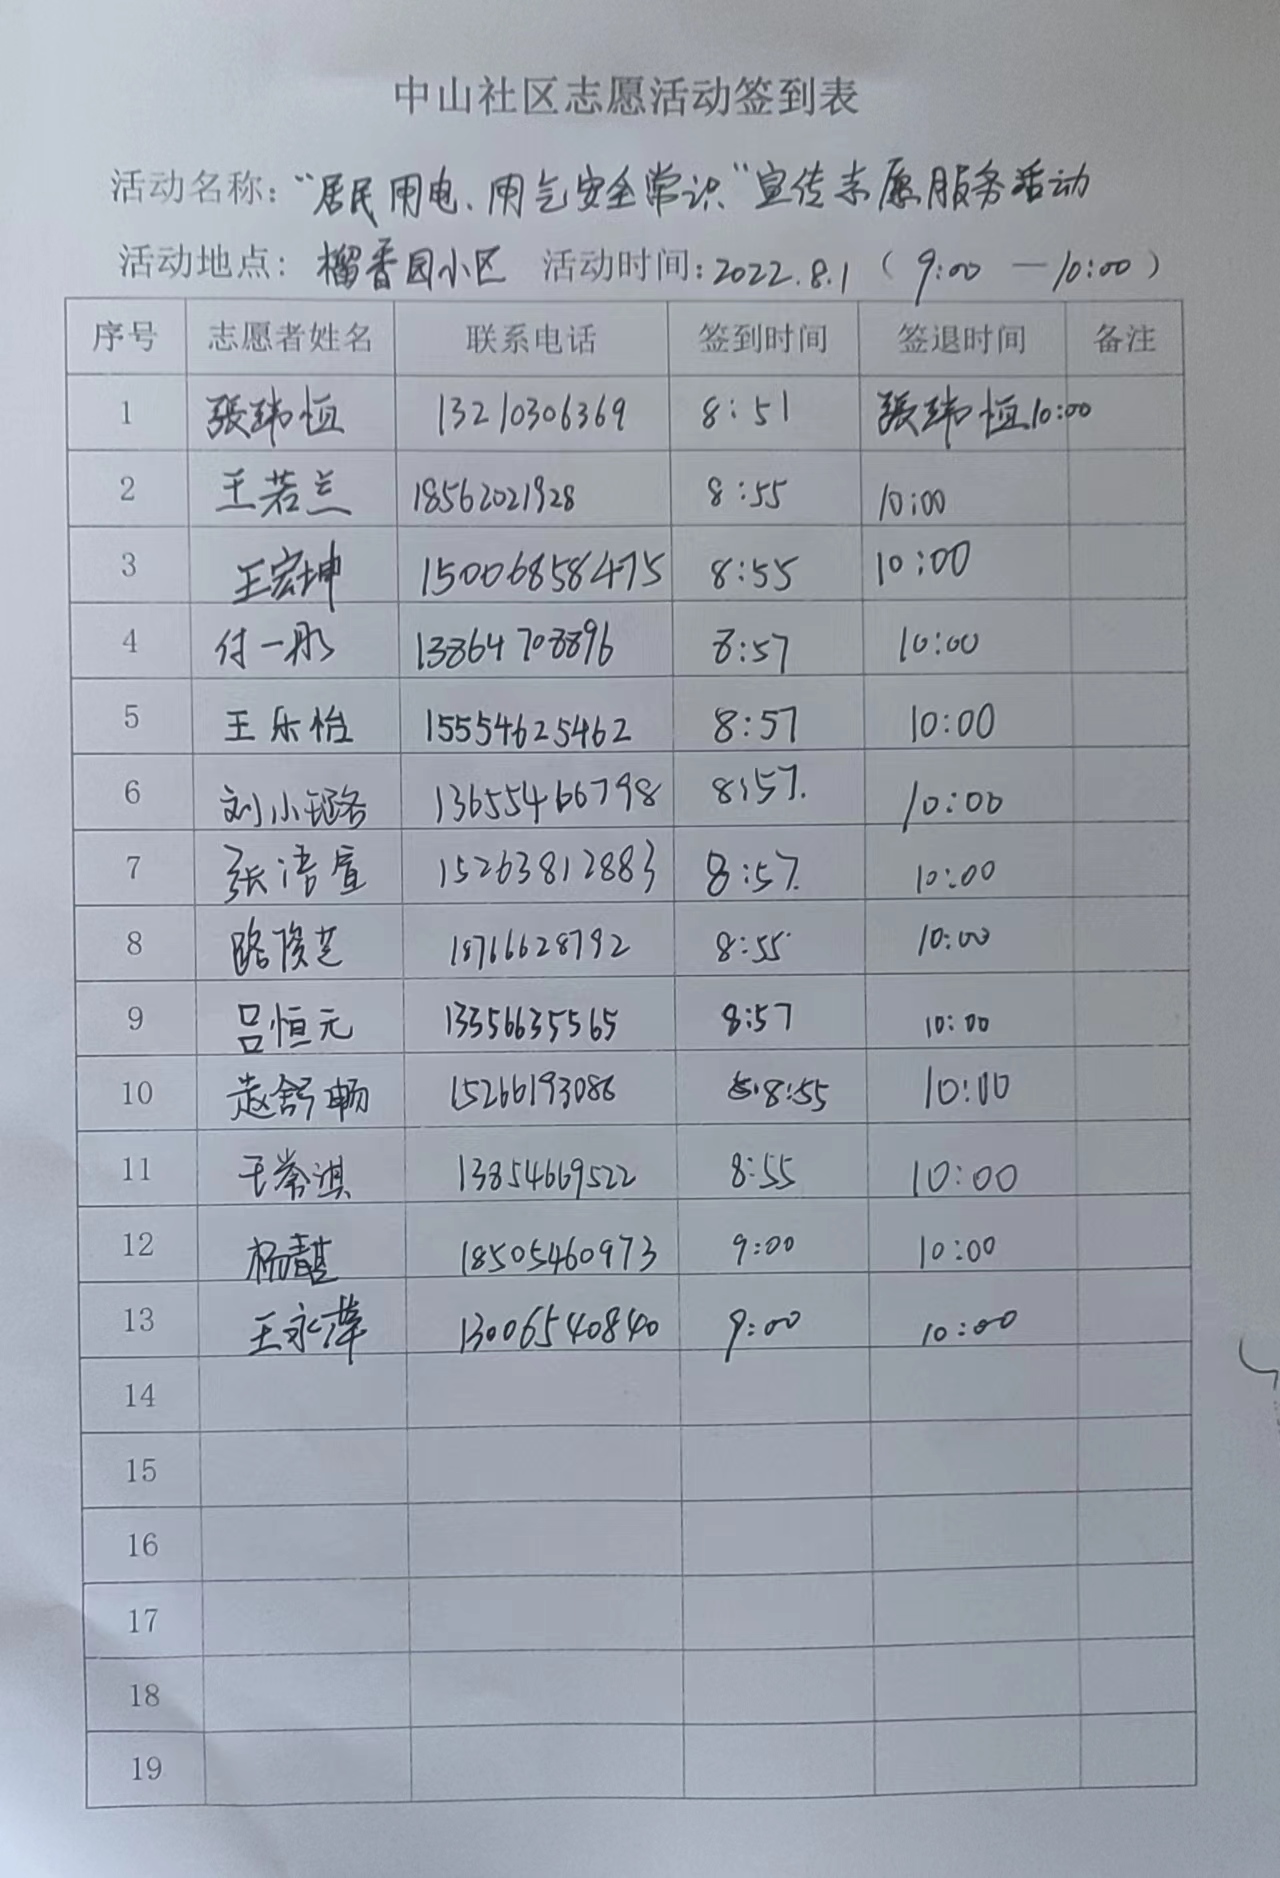 中山社区志愿活动签到表
活动名称："居民用电、用气安全常识"宣传志愿服务活动
活动地点：榴香园小区 活动时间：2022.8.1（9:00 —10:00）
序号 志愿者姓名 联系电话 签到时间 签退时间 备注
1 張玮恒 13210306369 8:51 張玮恒10:00
2 王若兰 18562021928 8:55 10:00
3 王宏坤 15006858475 8:55 10:00
4 付一彤 13864708896 8:57 10:00
5 王乐怡 15554625462 8:57 10:00
6 刘小璐 13655466798 8:57. 10:00
7 张语宣 15263812883 8:57. 10:00
8 路俊芝 18716628792 8:55 10:00
9 吕恒元 13356635565 8:57 10:00
10 赵舒畅 15266193086 8:55 10:00
11 淇 13854669522 8:55 10:00
12 杨 18505460973 9:00 10:00
13 王永萍 13006540840 9:00 10:00
14
15
16
17
18
19